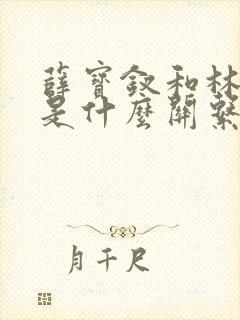 薛寶釵和林
是什麼關繫
月千尺